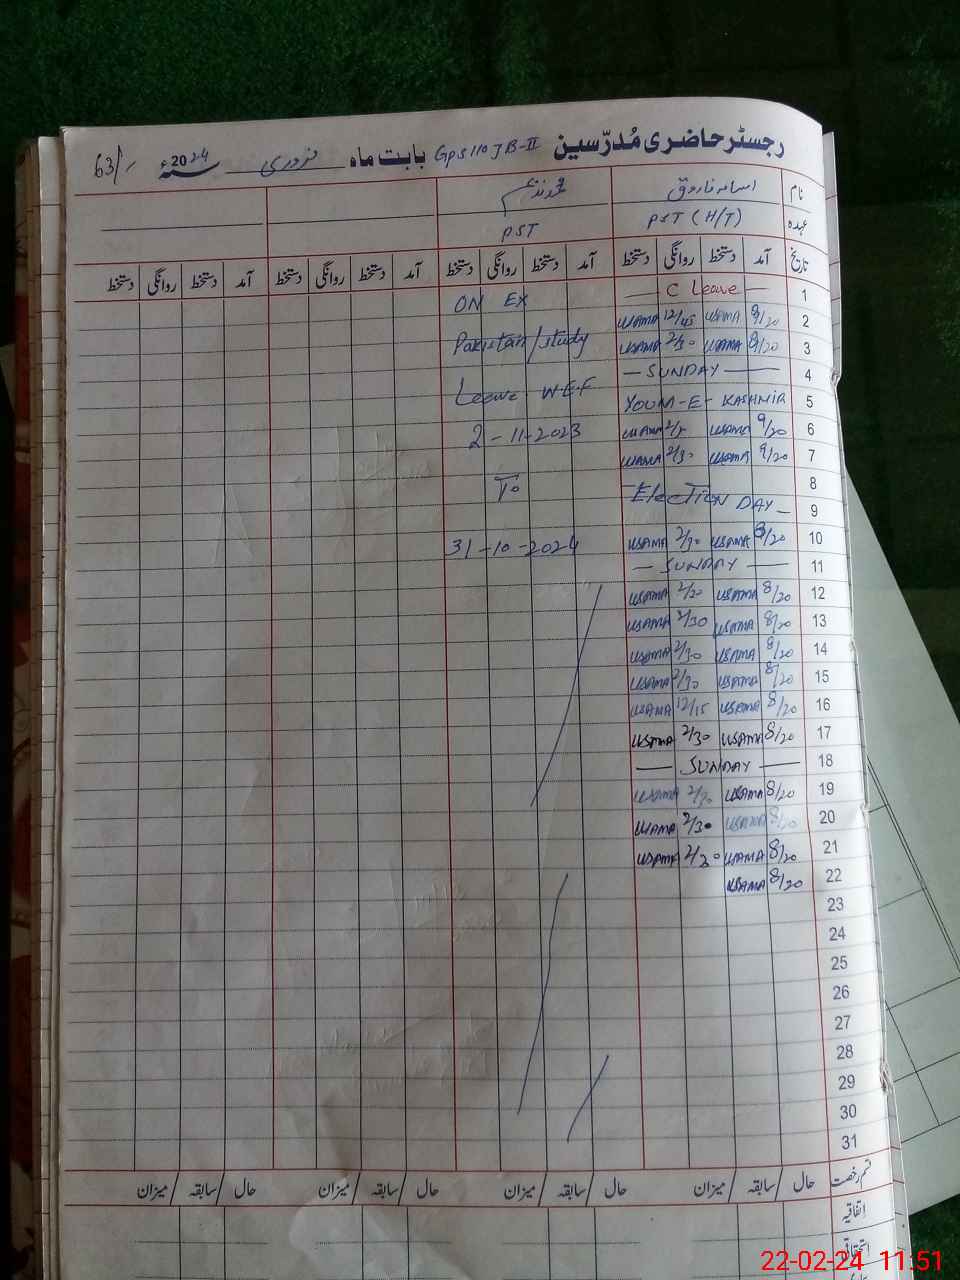 رجسٹر حاضری مُدرّسین GPS 110 JB-II بابت ماہ فروری سنہ 2024ء 63/-
نام اسامہ فاروق محمد ندیم
عہدہ PST (H/T) PST
تاریخ آمد دستخط روانگی دستخط آمد دستخط روانگی دستخط آمد دستخط روانگی دستخط آمد دستخط روانگی دستخط
1 — C Leave — ON EX
2 USAMA 12/45 USAMA 9/20
3 USAMA 2/30 USAMA 8/20 Pakistan/study
4 — SUNDAY —
5 YOUM-E-KASHMIR Leave W.E.F
6 USAMA USAMA 9/20 2-11-2023
7 USAMA 2/30 USAMA 9/20
8 To
9 Election DAY
10 USAMA 2/30 USAMA 8/20 31-10-2024
11 — SUNDAY —
12 USAMA 2/30 USAMA 8/20
13 USAMA 2/30 USAMA 8/20
14 USAMA 2/30 USAMA 8/20
15 USAMA 2/30 USAMA 8/20
16 USAMA 12/15 USAMA 8/20
17 USAMA 2/30 USAMA 8/20
18 — SUNDAY —
19 USAMA 2/30 USAMA 8/20
20 USAMA 2/30 USAMA 8/20
21 USAMA 2/30 USAMA 8/20
22 USAMA 8/20
23
24
25
26
27
28
29
30
31
قسم رخصت حال / سابقہ / میزان حال / سابقہ / میزان حال / سابقہ / میزان حال / سابقہ / میزان
اتفاقیہ
استحقاقی
22-02-24 11:51